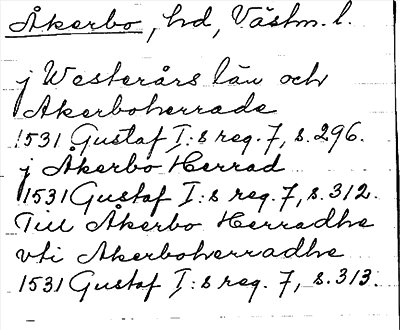 Åkerbo, hd, Västm. l.
j Westerårs län och
Akerboherrade
1531 Gustaf I:s reg. 7, s. 296.
j Åkerbo Herrad
1531 Gustaf I:s reg. 7, s. 312.
Till Åkerbo Herradhe
vti Akerboherradhe
1531 Gustaf I:s reg. 7, s. 313.